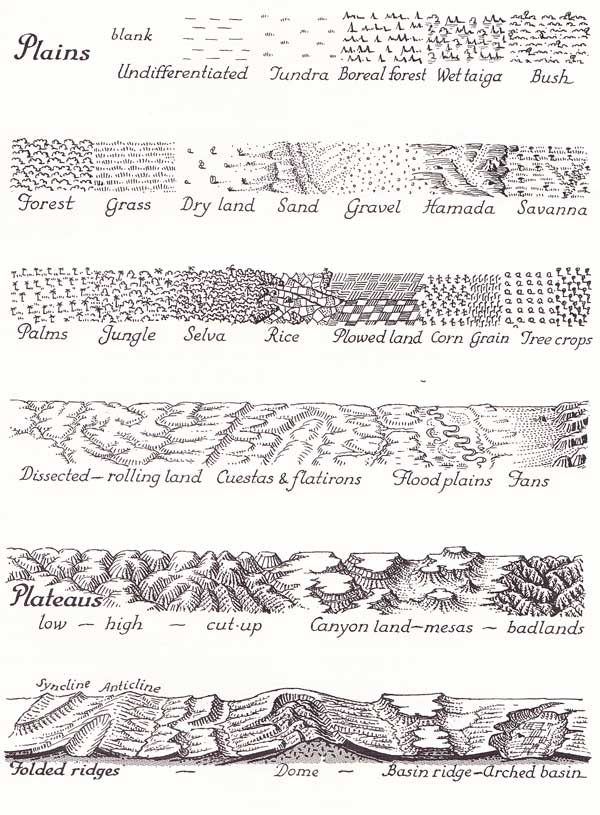 Plains blank
Undifferentiated Tundra Boreal forest Wet taiga Bush
Forest Grass Dry land Sand Gravel Hamada Savanna
Palms Jungle Selva Rice Plowed land Corn Grain Tree crops
Dissected — rolling land Cuestas & flatirons Flood plains Fans
Plateaus
low — high — cut-up Canyon land — mesas — badlands
Syncline Anticline
Folded ridges — Dome — Basin ridge — Arched basin